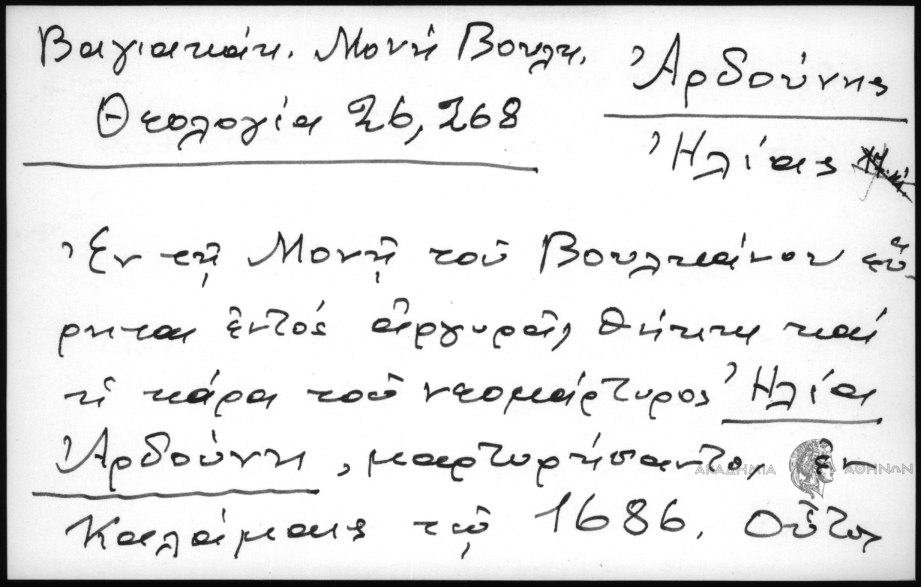 Βαγιακάκ. Μονή Βουλκ.
Θεολογία 26, 268
Ἀρδούνης
Ἠλίας
Ἐν τῇ Μονῇ τοῦ Βουλκάνου εὕ-
ρηται ἐντός ἀργυρᾶς θήκης καί
ἡ κάρα τοῦ νεομάρτυρος Ἠλία
Ἀρδούνη, μαρτυρήσαντος ἐν
Καλάμαις τῷ 1686. Οὗτος
ΑΚΑΔΗΜΙΑ ΑΘΗΝΩΝ